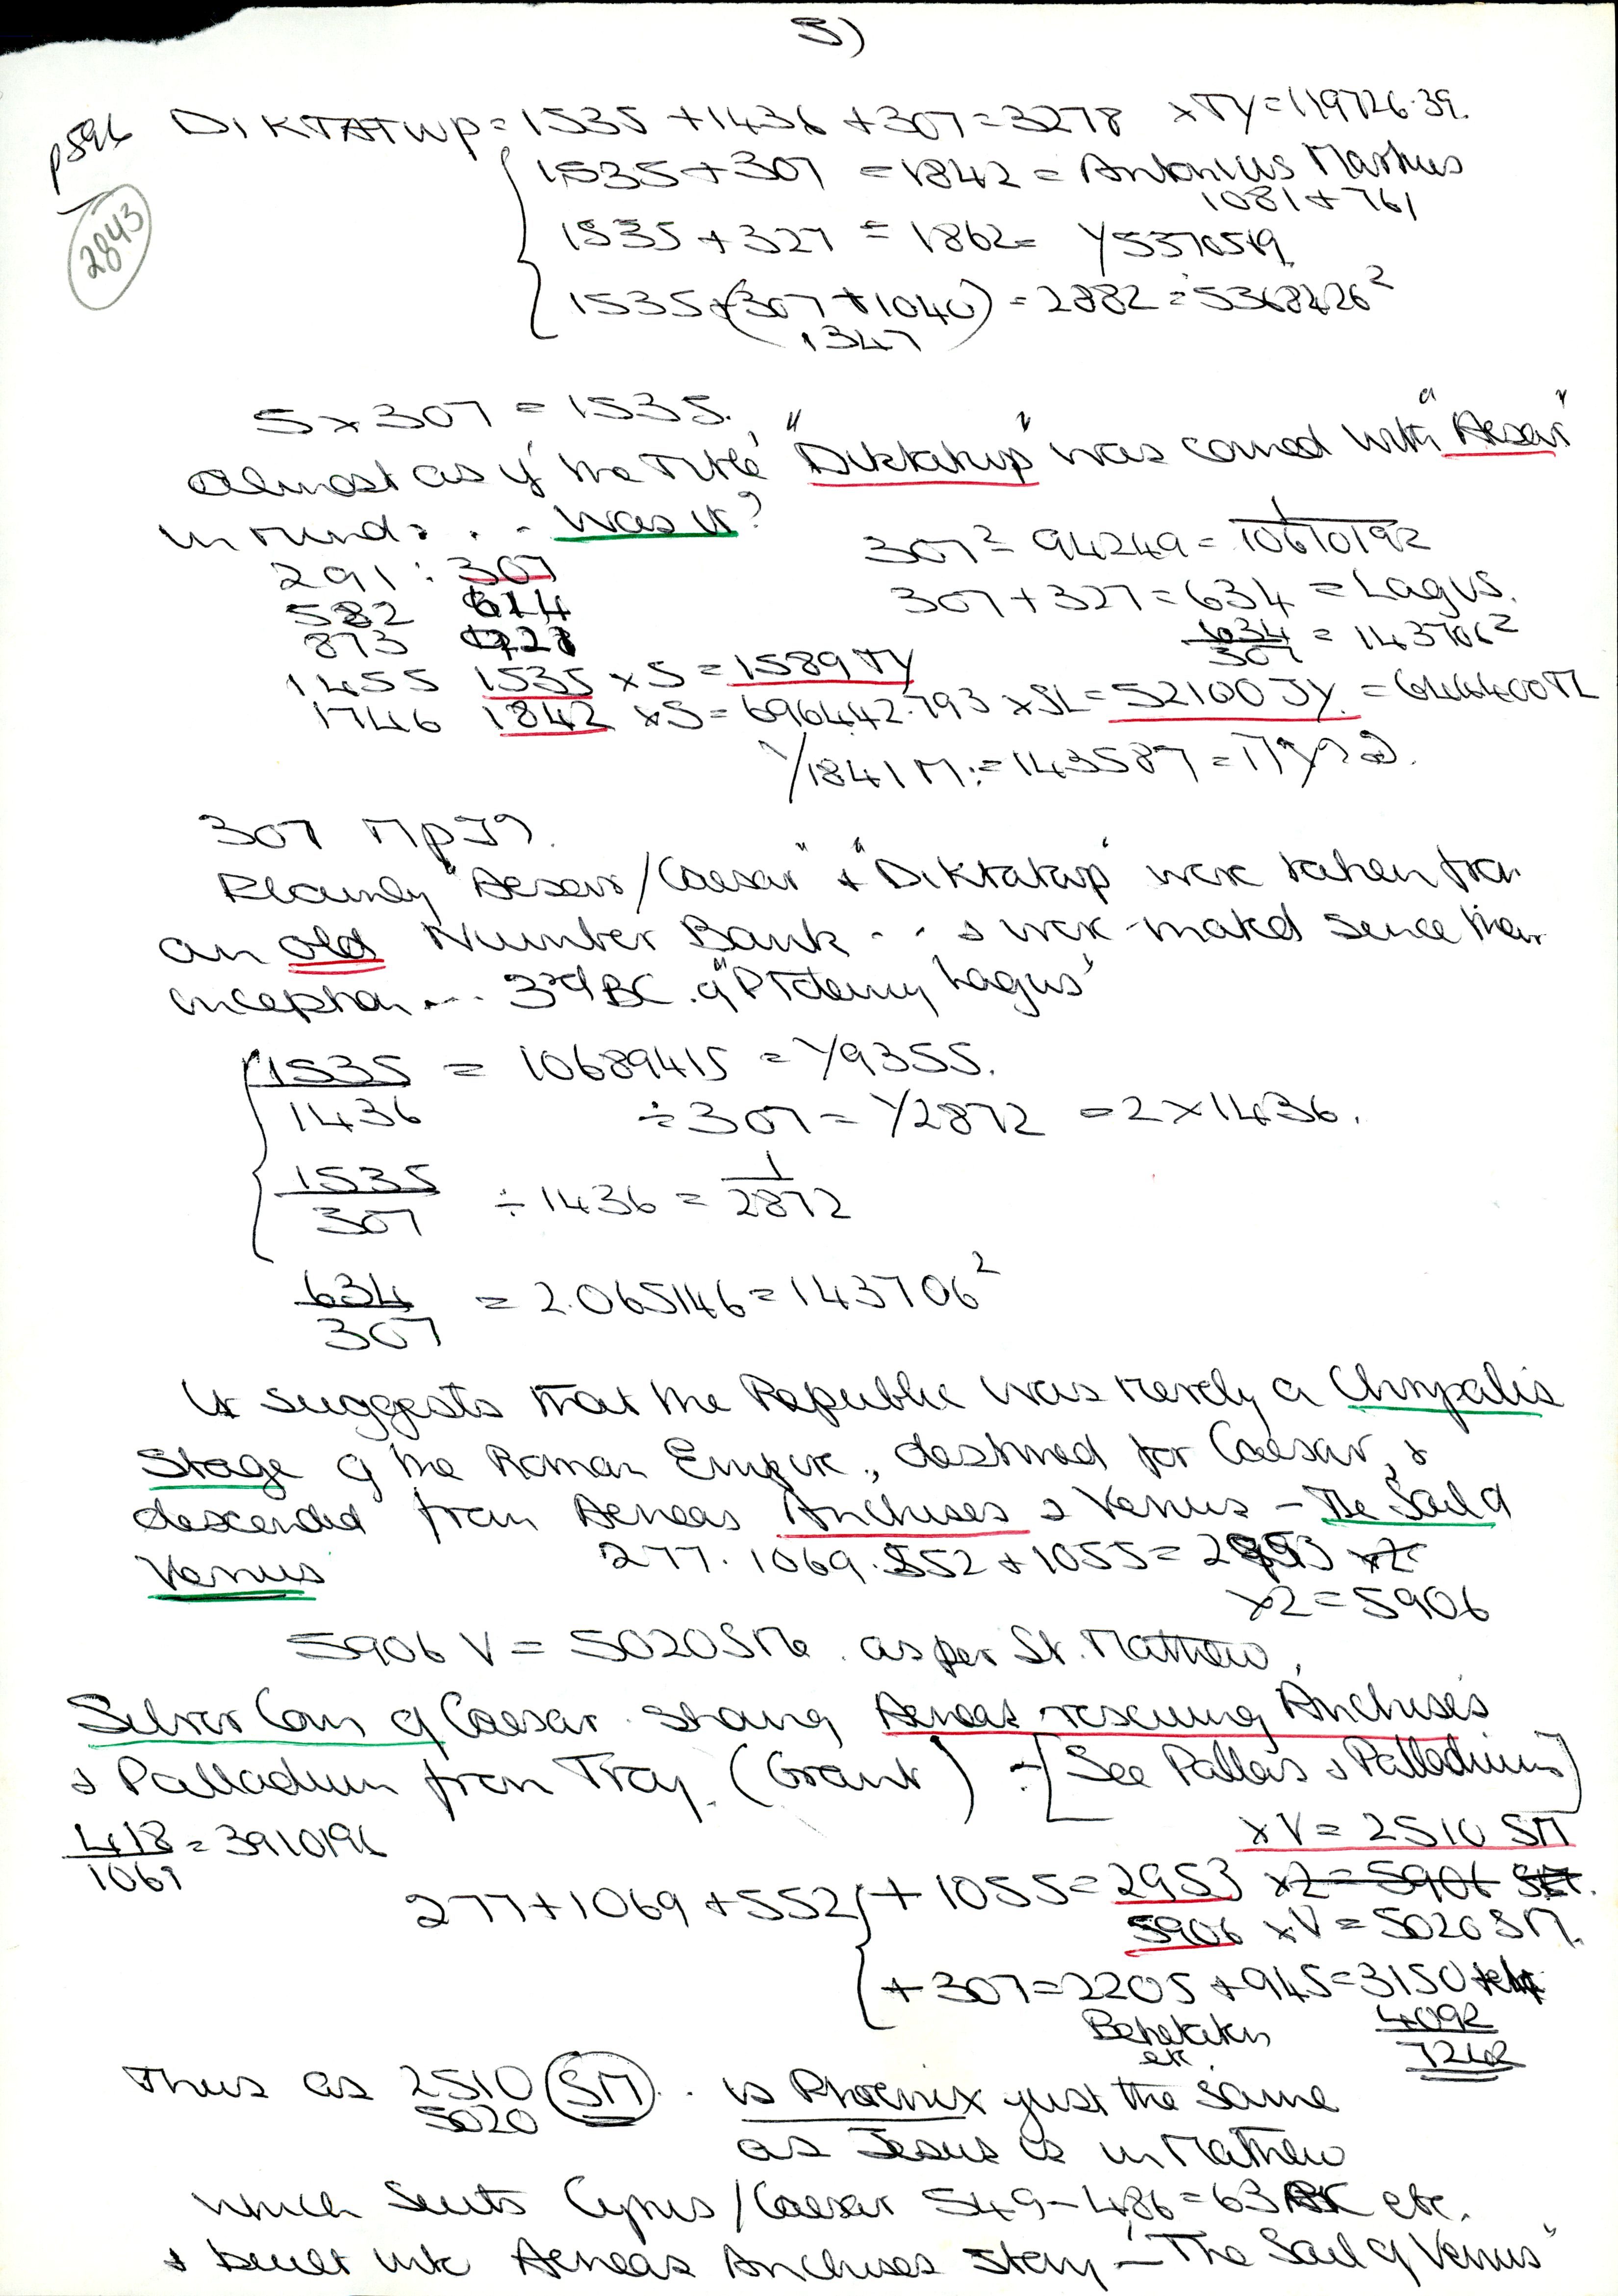 5)
p596 DIKTATWP = 1535 + 1436 + 307 = 3278 x TY = 119726.39.
2843
1535 + 307 = 1842 = Antonius Markus
1081 + 761
1535 + 327 = 1862 = Y5370519
1535 + (307 + 1040) = 2882 = 5368426²
1347
5 x 307 = 1535.
Almost as if the Title "Diktatwp" was coined with "Aesar"
in mind. . . Was it?
307² = 94249 = 1/10610192
291 : 307
307 + 327 = 634 = Lagus.
582 614
634/307 = 143706²
873
1455 1535 x S = 1589 TY
1746 1842 x S = 696442.793 x SL = 52100 JY. = 644400 TL
Y1841 M. = 143587 =
307
"Aesar/Caesar" & "Diktatwp" were taken from
an old Number Bank . . & were mated since their
inception ... 3rd BC. of "Ptolemy Lagus"
1535/1436 = 10689415 = Y9355.
÷ 307 = Y2872 = 2 x 1436.
1535/307 ÷ 1436 = 1/2872
634/307 = 2.065146 = 143706²
It suggests that the Republic was merely a Chrysalis
Stage of the Roman Empire, destined for Caesar, &
descended from Aeneas Anchises & Venus – The Soul of
Venus 277. 1069. 552 + 1055 = 2953 x2
x2 = 5906
5906 V = 5020 SMe. as per St. Matthew,
Silver Coin of Caesar showing Aeneas rescuing Anchises
& Palladium from Troy. (Grant) – [See Pallas & Palladium]
418/1069 = 3910196
x V = 2510 SM
277 + 1069 + 552 + 1055 = 2953 x2 = 5906 SM.
5906 x V = 5020 SM.
+ 307 = 2205 + 945 = 3150
4092
etc.
7242
Thus as 2510 SM . . is Phoenix just the same
5020
as Jesus is in Matthew
which suits Cyrus/Caesar 549 – 486 = 63 BC etc.
& built into Aeneas Anchises story – "The Soul of Venus"